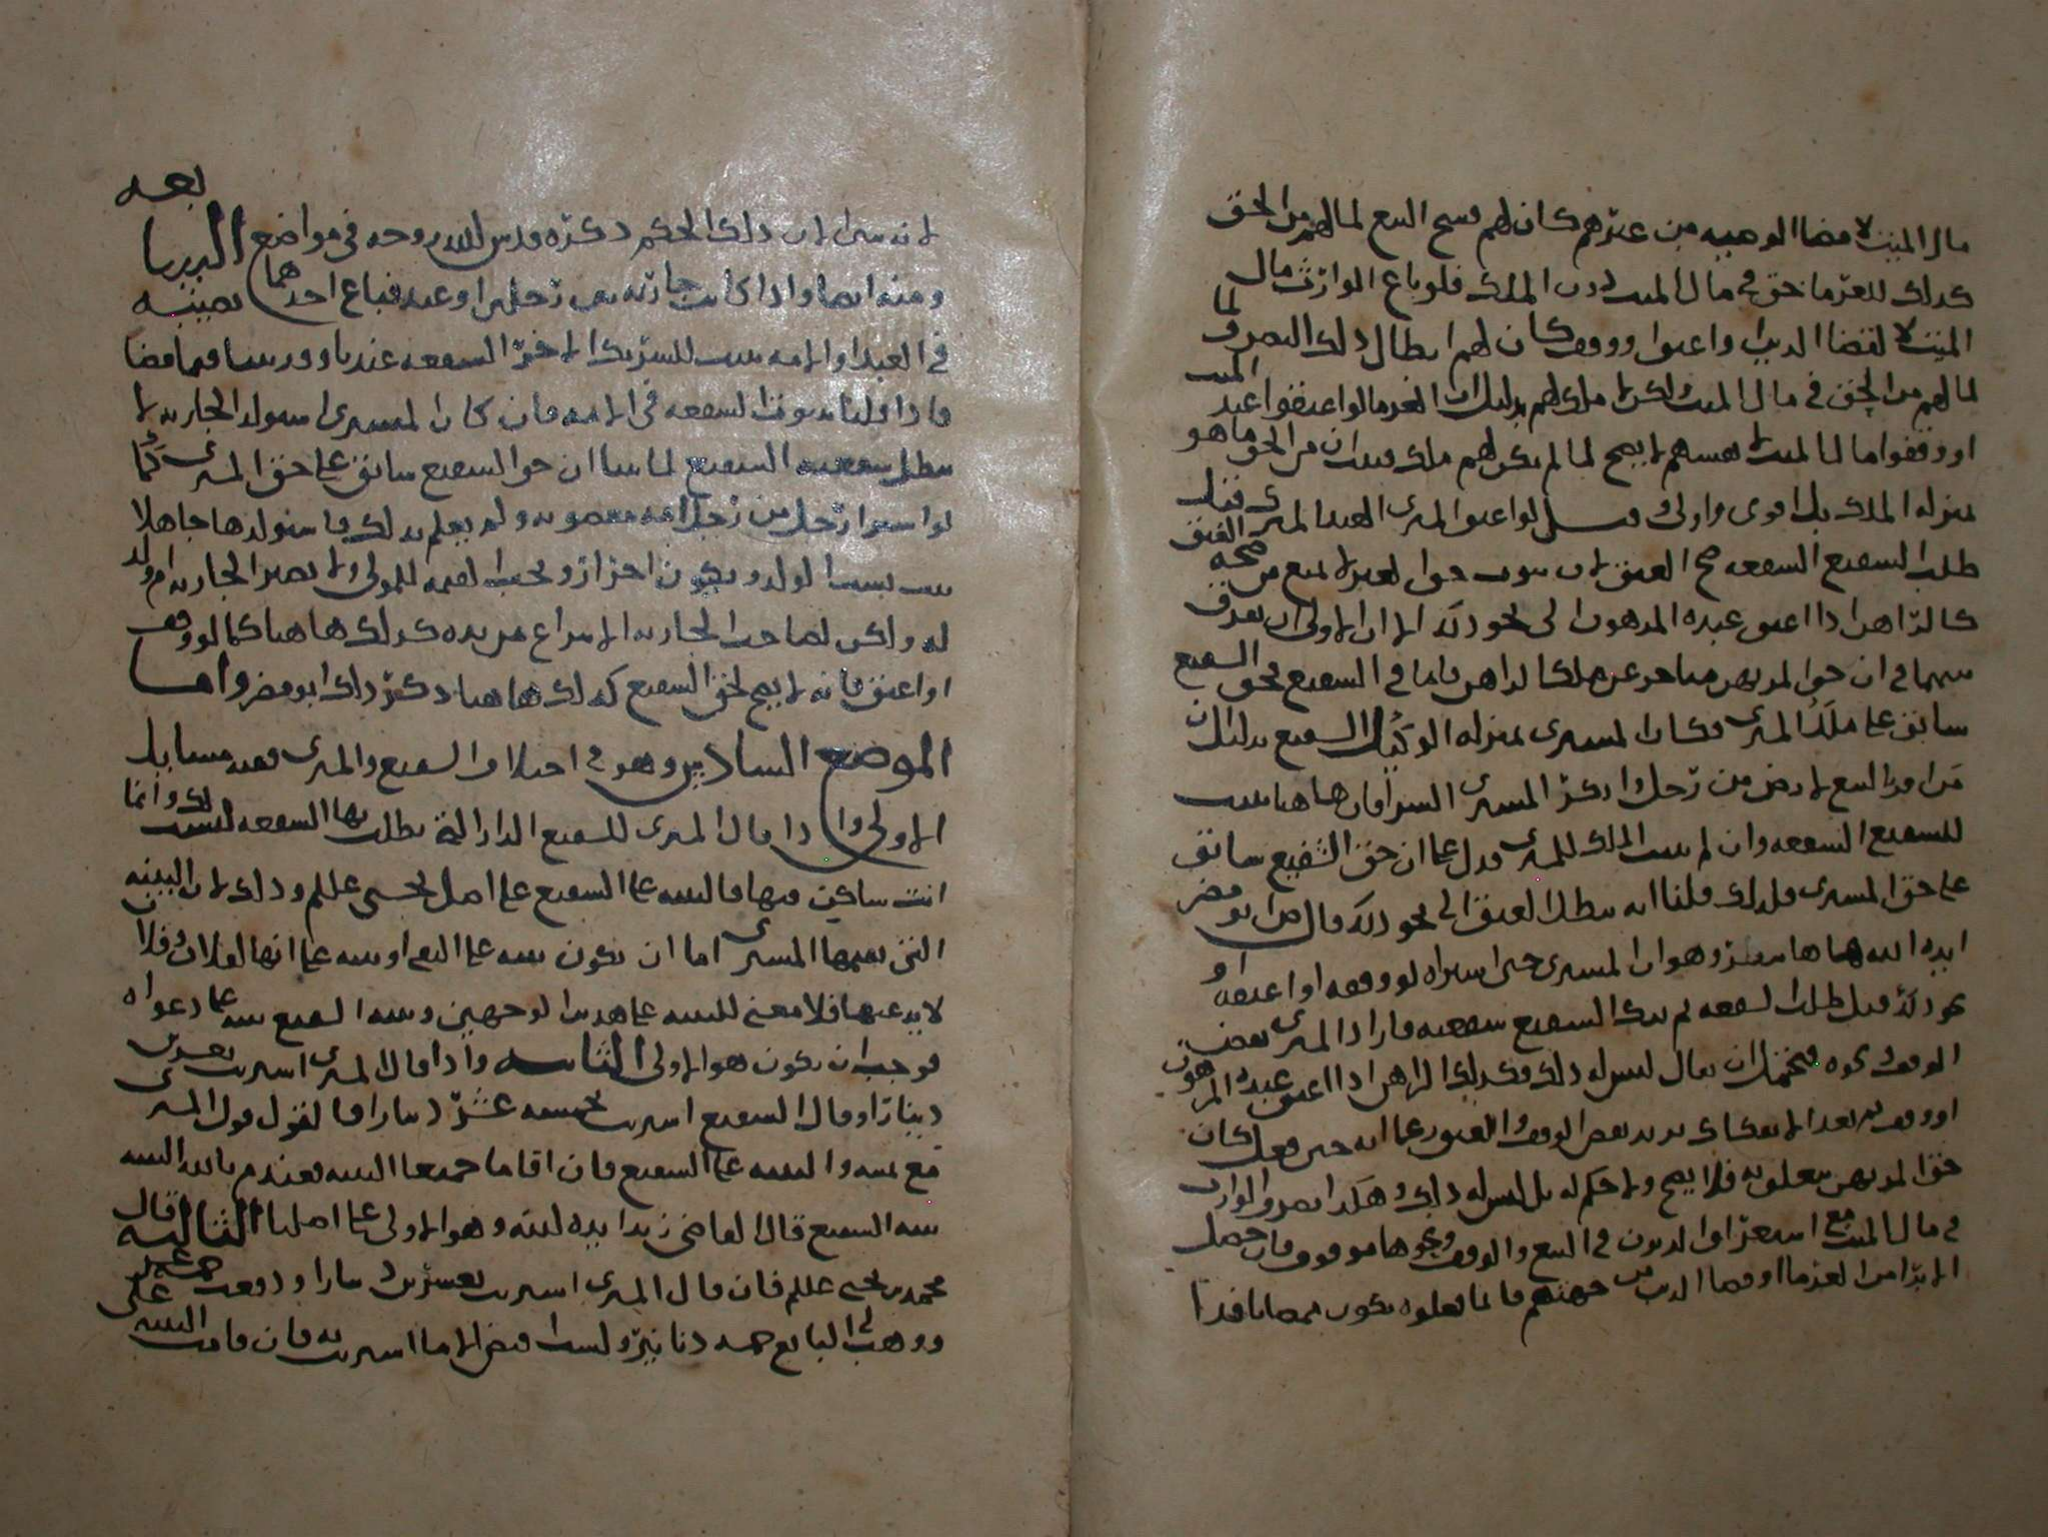 مال الميت لا مضا الوصيه من عندهم كان لهم فسح البيع لما لهم من الحق
كذلك للغرما حق في مال الميت دون الملك فلو باع الوارث مال
الميت لا لقضا الدين او اعتق او وقف كان لهم ابطال ذلك التصرف لما
لهم من الحق في مال الميت ولكن لا ملك لهم بدليل ان الغرما لو اعتقوا عبد الميت
او وقفوا مال الميت لا نفسهم لا يصح لما لم يكن لهم ملك فبان ان من الحق ما هو
بمنزله الملك بل اقوى واولى لو اعتق المشتري العبد المشترى قبل
طلب الشفيع الشفعه صح العتق لان ثبوت حق الغير لا يمنع من صحه العتق
كالراهن اذا اعتق عبده المرهون الى نحو ذلك الا ان الاولى ان يفرق
بينهما في ان حق المرتهن متاخر عن ملك الراهن فاما في الشفيع فحق الشفيع
سابق على ملك المشتري فكان المشتري بمنزله الوكيل للشفيع بدليل ان
من اقر ببيع لارض من رجل وانكر المشتري الشرا فان هاهنا يثبت
للشفيع الشفعه وان لم يثبت الملك للمشتري فدل على ان حق الشفيع سابق
على حق المشتري فلذلك قلنا انه يبطل العتق الى نحو ذلك قال ابو مضر
ايده الله هاهنا وهو ان المشتري حين اشتراه لو وقفه او اعتقه او
نحو ذلك قبل طلب الشفعه ثم ترك الشفيع شفعته فاراد المشتري نقض
الوقف ونحوه فيحتمل ان يقال ليس له ذلك وكذلك الراهن اذا اعتق عبده المرهون
او وقفه ثم بعد الافتكاك يريد نقض الوقف والعتق على انه حين فعل كان
حق المرتهن متعلق به فلا يصح ولا حكم له بل ليس له ذلك وهكذا تصرف الوارث
في مال الميت مع استغراق الديون في البيع والوقف ونحوها موقوف فان حصل
الابرا من الغرما او قضا الدين من جهتهم فان ما فعلوه يكون ممضا نافذا
لانه ذلك الحكم ذكره قدس الله روحه في مواضع البربا بعه
ومنه ايضا واذا كانت جاريه بين رجلين او عبد فباع احدهما نصيبه
في العبد او الامه يثبت للشريك الاخر الشفعه عندنا وقد بينا فيما مضا
فاذا قلنا بثبوت الشفعه في الامه فان كان المشتري استولد الجاريه لا
يبطل شفعه الشفيع لما بينا ان حق الشفيع سابق على حق المشتري كما
لو اشترا رجل من رجل امه مغصوبه ولم يعلم بذلك فاستولدها جاهلا
يثبت نسب الولد ويكون احرار ويجب القيمه للمولى ولا تصير الجاريه ام ولد
له ولكن لصاحب الجاريه الانتزاع من يده كذلك هاهنا كما لو وقف
او اعتق فانه لا يصح لحق الشفيع كذلك هاهنا ذكر ذلك ابو مضر واما
الموضع السادس وهو في اختلاف الشفيع والمشتري ففيه مسايل
الاولى واذا قال المشتري للشفيع الدار التي تطلب بها الشفعه ليست لك وانما
انت ساكن فيها فالبينه على الشفيع على اصل يحيى عللم وذلك لان البينه
التي يقيمها المشتري اما ان تكون بينه على النفي او بينه على انها لفلان وفلان
لا يدعيها فلا معنى للبينه على هذين الوجهين وبينه الشفيع بينه على دعواه
فوجب ان تكون هو الاولى الثانيه واذا قال المشتري اشتريت بعشرين
دينارا وقال الشفيع اشتريت بخمسه عشر دينارا فالقول قول المشتري
مع يمينه والبينه على الشفيع فان اقاما جميعا البينه فعند م بالله البينه
بينه الشفيع قال القاضي زيد ايده لبينه وهو الاولى على اصلنا الثالثه قال
محمد بن يحيى عللم فان قال المشتري اشتريت بعشرين دينارا ودفعت خمسه عشر
ووهب لي البايع خمسه دنانير وليست قبض الا ما اشتريت به فان قامت البينه على